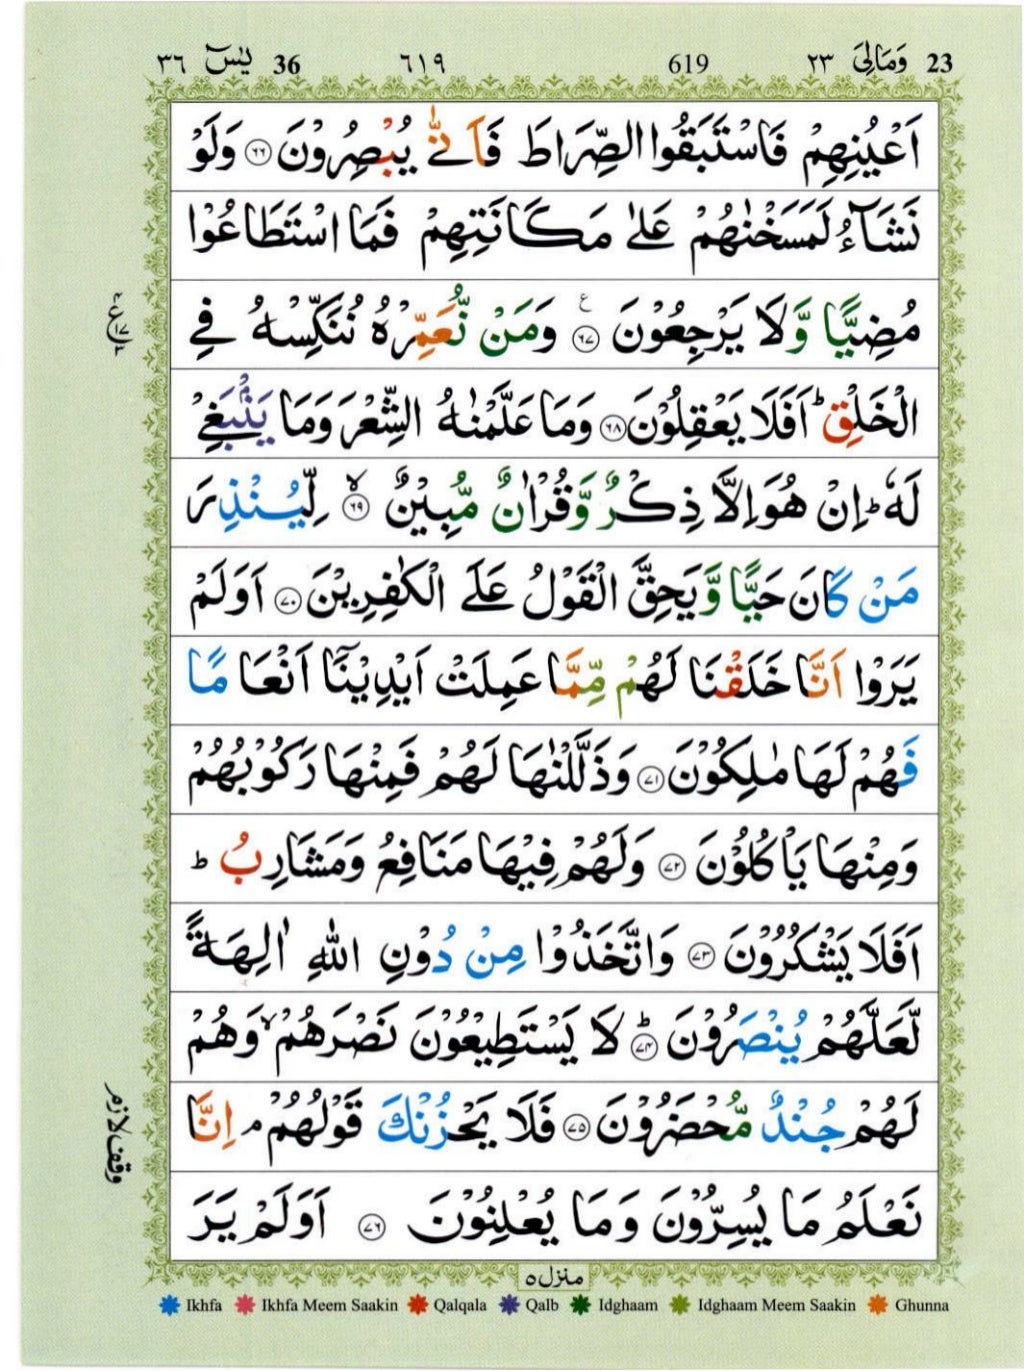 ٣٦ يٰسٓ 36 ٦١٩ 619 ٢٣ وَمَالِيَ 23
اَعْيُنِهِمْ فَاسْتَبَقُوا الصِّرَاطَ فَاَنّٰى يُبْصِرُوْنَ ﴿٦٦﴾ وَلَوْ
نَشَآءُ لَمَسَخْنٰهُمْ عَلٰى مَكَانَتِهِمْ فَمَا اسْتَطَاعُوْا
مُضِيًّا وَّلَا يَرْجِعُوْنَ ﴿٦٧﴾ ع وَمَنْ نُّعَمِّرْهُ نُنَكِّسْهُ فِي
الْخَلْقِ ؕ اَفَلَا يَعْقِلُوْنَ ﴿٦٨﴾ وَمَا عَلَّمْنٰهُ الشِّعْرَ وَمَا يَنْۢبَغِيْ
لَهٗ ؕ اِنْ هُوَ اِلَّا ذِكْرٌ وَّقُرْاٰنٌ مُّبِيْنٌ ﴿٦٩﴾ ۙ لِّيُنْذِرَ
مَنْ كَانَ حَيًّا وَّيَحِقَّ الْقَوْلُ عَلَى الْكٰفِرِيْنَ ﴿٧٠﴾ اَوَلَمْ
يَرَوْا اَنَّا خَلَقْنَا لَهُمْ مِّمَّا عَمِلَتْ اَيْدِيْنَاۤ اَنْعَامًا
فَهُمْ لَهَا مٰلِكُوْنَ ﴿٧١﴾ وَذَلَّلْنٰهَا لَهُمْ فَمِنْهَا رَكُوْبُهُمْ
وَمِنْهَا يَاْكُلُوْنَ ﴿٧٢﴾ وَلَهُمْ فِيْهَا مَنَافِعُ وَمَشَارِبُ ؕ
اَفَلَا يَشْكُرُوْنَ ﴿٧٣﴾ وَاتَّخَذُوْا مِنْ دُوْنِ اللّٰهِ اٰلِهَةً
لَّعَلَّهُمْ يُنْصَرُوْنَ ﴿٧٤﴾ ؕ لَا يَسْتَطِيْعُوْنَ نَصْرَهُمْ ۙ وَهُمْ
لَهُمْ جُنْدٌ مُّحْضَرُوْنَ ﴿٧٥﴾ فَلَا يَحْزُنْكَ قَوْلُهُمْ ۘ اِنَّا
نَعْلَمُ مَا يُسِرُّوْنَ وَمَا يُعْلِنُوْنَ ﴿٧٦﴾ اَوَلَمْ يَرَ
وقف لازم
منزل ٥
Ikhfa Ikhfa Meem Saakin Qalqala Qalb Idghaam Idghaam Meem Saakin Ghunna